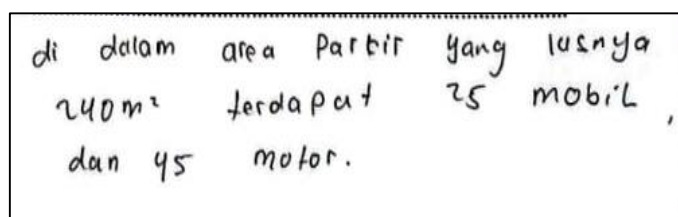 di dalam area Parkir yang lusnya
240m² terdapat 25 mobiL,
dan 45 motor.